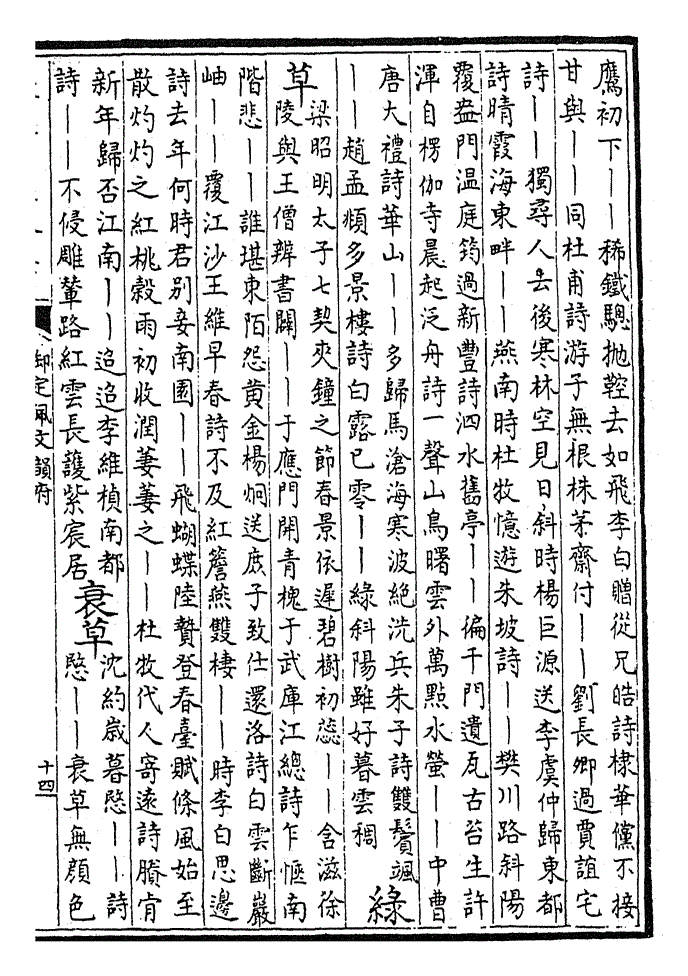 鷹初下｜｜稀鐵驄抛鞚去如飛李白贈從兄皓詩棣華儻不接
甘與｜｜同杜甫詩游子無根株茅齋付｜｜劉長卿過賈誼宅
詩｜｜獨尋人去後寒林空見日斜時楊巨源送李虞仲歸東都
詩晴霞海東畔｜｜燕南時杜牧憶遊朱坡詩｜｜樊川路斜陽
覆盎門温庭筠過新豐詩泗水舊亭｜｜徧千門遺瓦古苔生許
渾自楞伽寺晨起泛舟詩一聲山鳥曙雲外萬點水螢｜｜中曹
唐大禮詩華山｜｜多歸馬滄海寒波絶洗兵朱子詩雙鬢颯
｜｜趙孟頫多景樓詩白露已零｜｜綠斜陽雖好暮雲稠
綠
草
梁昭明太子七契夾鐘之節春景依遲碧樹初蕊｜｜含滋徐
陵與王僧辨書闢｜｜于應門開青槐于武庫江總詩乍愜南
階悲｜｜誰堪東陌怨黄金楊炯送庶子致仕還洛詩白雲斷巖
岫｜｜覆江沙王維早春詩不及紅簷燕雙棲｜｜時李白思邊
詩去年何時君別妾南園｜｜飛蝴蝶陸贄登春臺賦條風始至
散灼灼之紅桃榖雨初收潤萋萋之｜｜杜牧代人寄遠詩賸肯
新年歸否江南｜｜迢迢李維楨南都
詩｜｜不侵雕輦路紅雲長護紫宸居
衰草
沈約歲暮愍｜｜詩
愍｜｜衰草無顔色
御定佩文韻府
十四